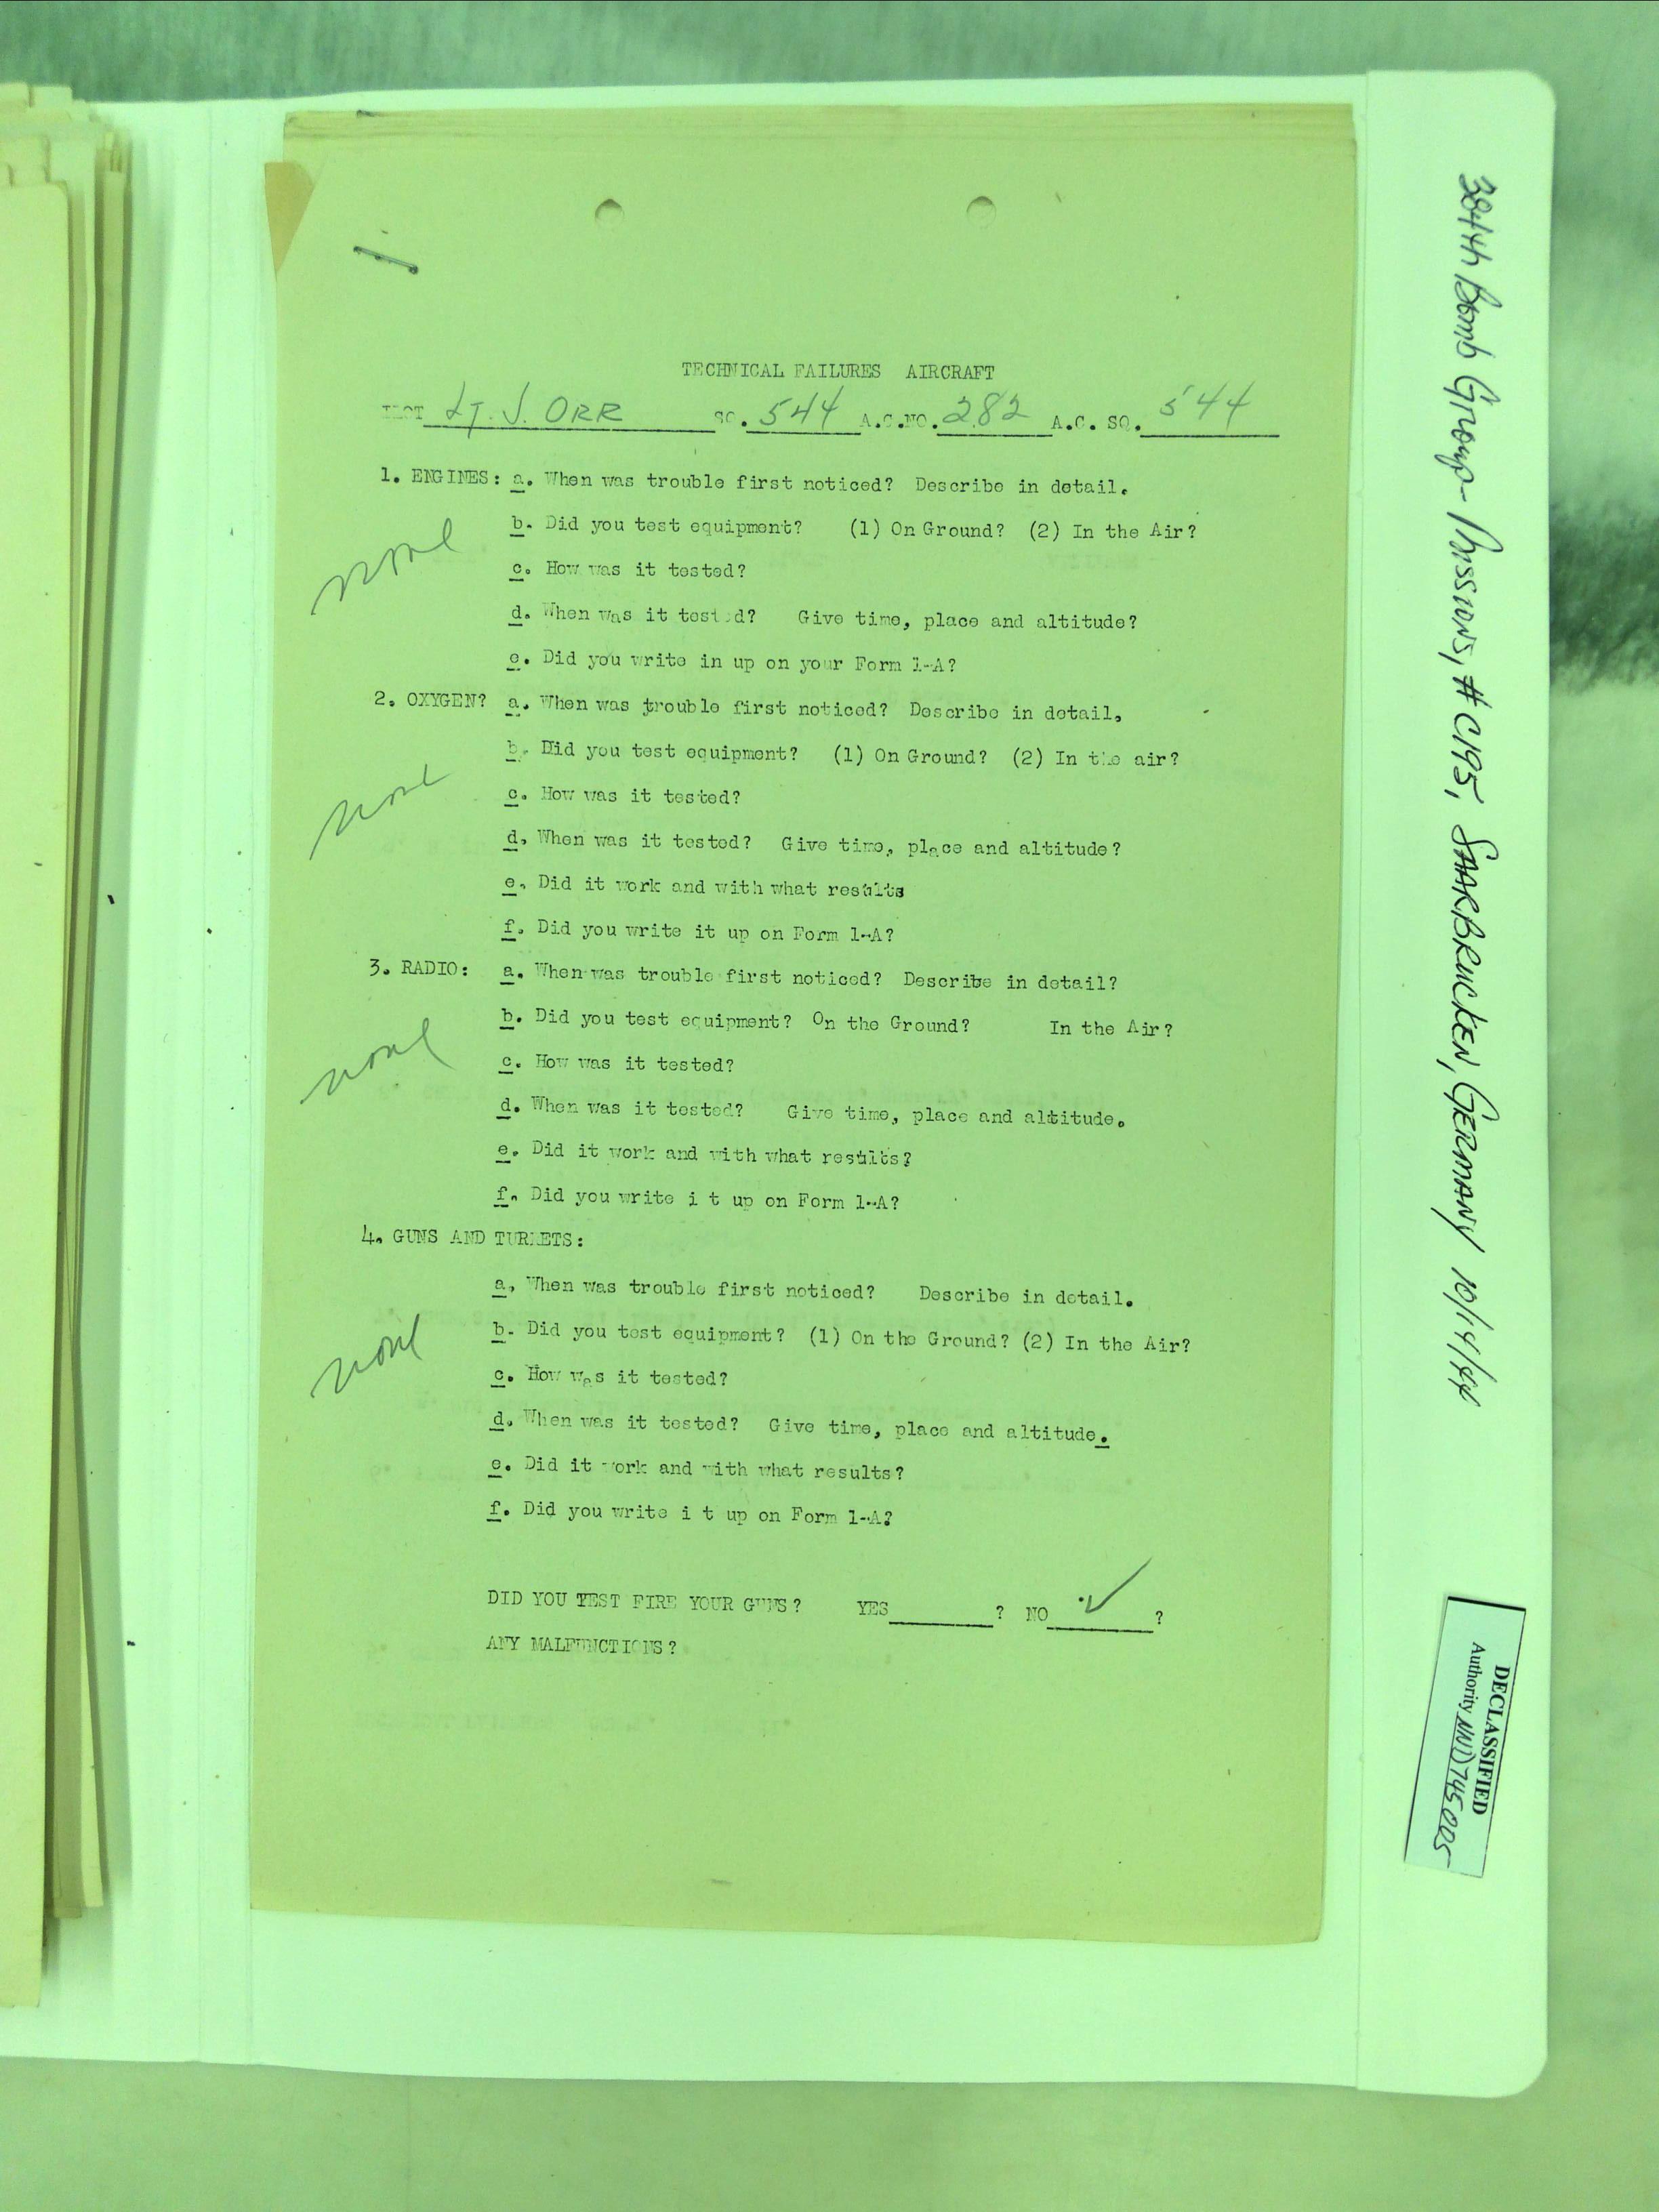 TECHNICAL FAILURES AIRCRAFT
Lt. J. ORR SQ. 544 A.C.NO. 282 A.C. SQ. 544
1. ENGINES: a. When was trouble first noticed? Describe in detail.
b. Did you test equipment? (1) On Ground? (2) In the Air?
none
c. How was it tested?
d. When was it tested? Give time, place and altitude?
e. Did you write in up on your Form 1-A?
2. OXYGEN? a. When was trouble first noticed? Describe in detail.
b. Did you test equipment? (1) On Ground? (2) In the air?
none
c. How was it tested?
d. When was it tested? Give time, place and altitude?
e. Did it work and with what results
f. Did you write it up on Form 1-A?
3. RADIO: a. When was trouble first noticed? Describe in detail?
b. Did you test equipment? On the Ground? In the Air?
none
c. How was it tested?
d. When was it tested? Give time, place and altitude.
e. Did it work and with what results?
f. Did you write i t up on Form 1-A?
4. GUNS AND TURRETS:
a. When was trouble first noticed? Describe in detail.
b. Did you test equipment? (1) On the Ground? (2) In the Air?
none
c. How was it tested?
d. When was it tested? Give time, place and altitude.
e. Did it work and with what results?
f. Did you write i t up on Form 1-A?
DID YOU TEST FIRE YOUR GUNS? YES ? NO ✓ ?
ANY MALFUNCTIONS?
384th Bomb Group - Missions, # C195, SAARBRUCKEN, GERMANY 10/14/44
DECLASSIFIED
Authority NND 745005